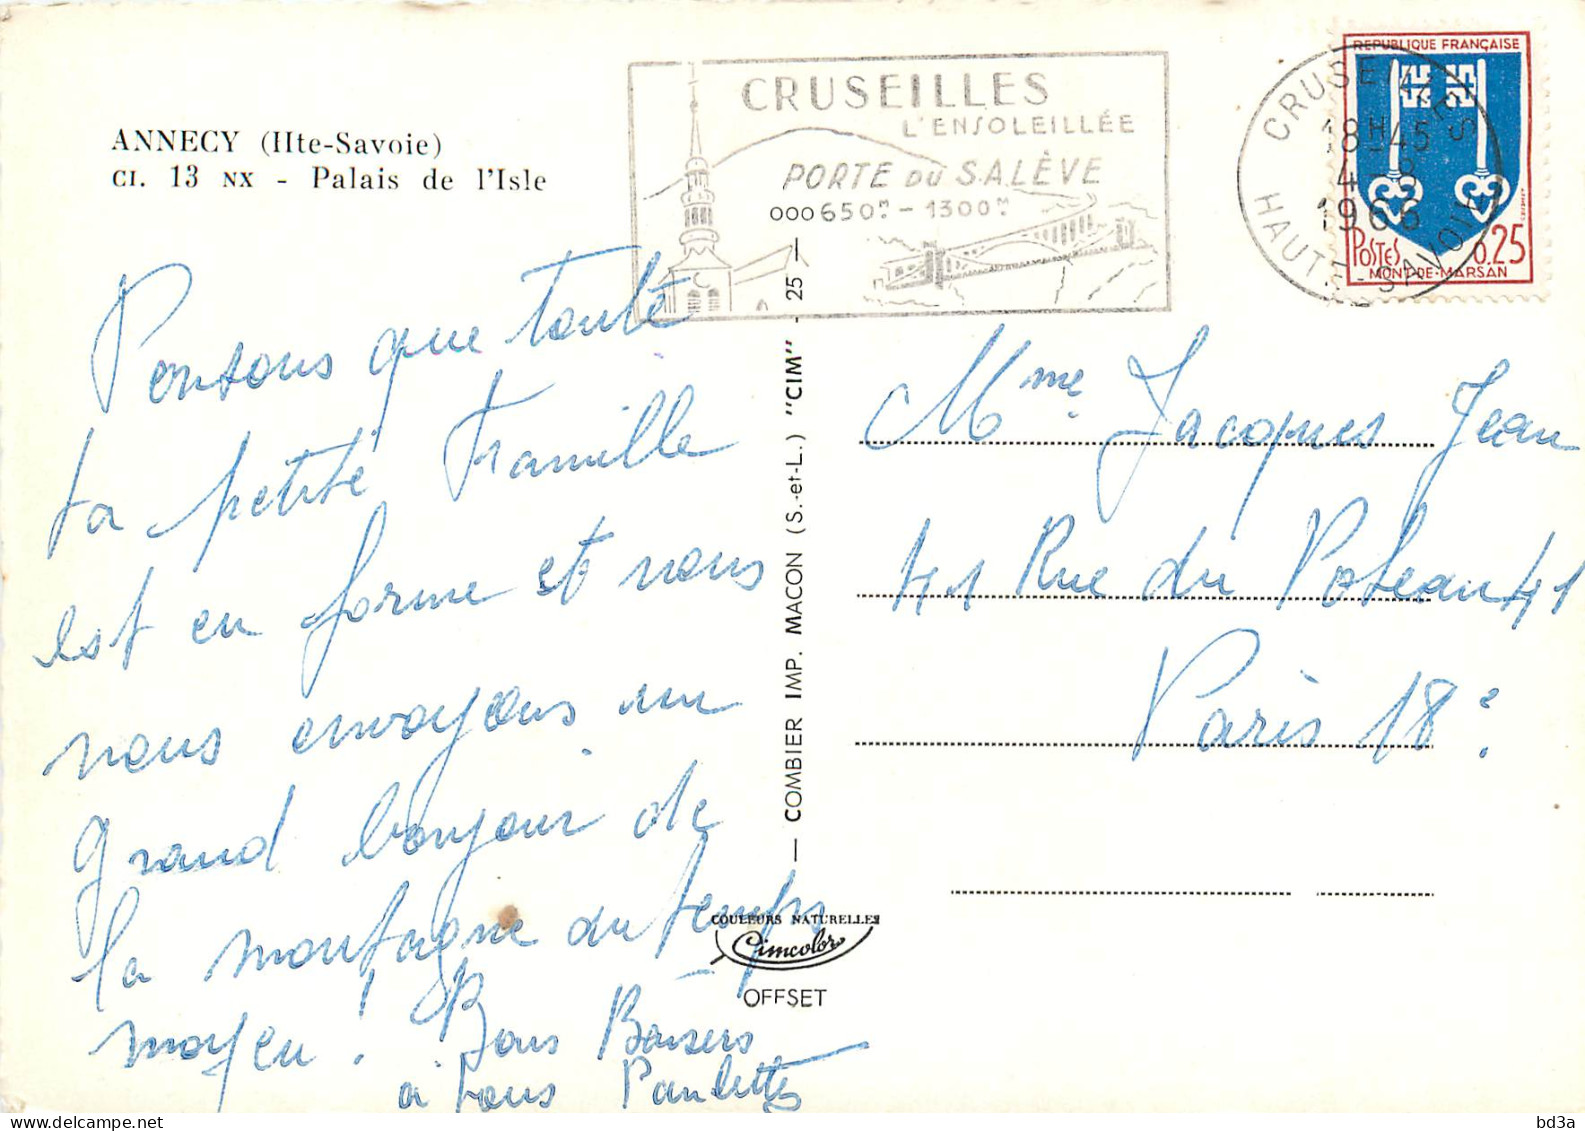 ANNECY (Hte-Savoie)
CI. 13 NX - Palais de l'Isle
CRUSEILLES
L'ENSOLEILLÉE
PORTE DU SALÈVE
000 650m - 1300m
CRUSEILLES
18H45
4-8
1966
HAUTE-SAVOIE
REPUBLIQUE FRANÇAISE
POSTES 0,25
MONT-DE-MARSAN
Pensons que toute
ta petite Famille
est en forme et nous
nous envoyons un
grand bonjour de
la montagne du temps
moyen ! Bons Baisers
à tous Paulette
— COMBIER IMP. MACON (S.-et-L.) "CIM" - 25 —
COULEURS NATURELLES
Cimcolor
OFFSET
Mme Jacques Jean
41 Rue du Poteau 41
Paris 18e
bd3a